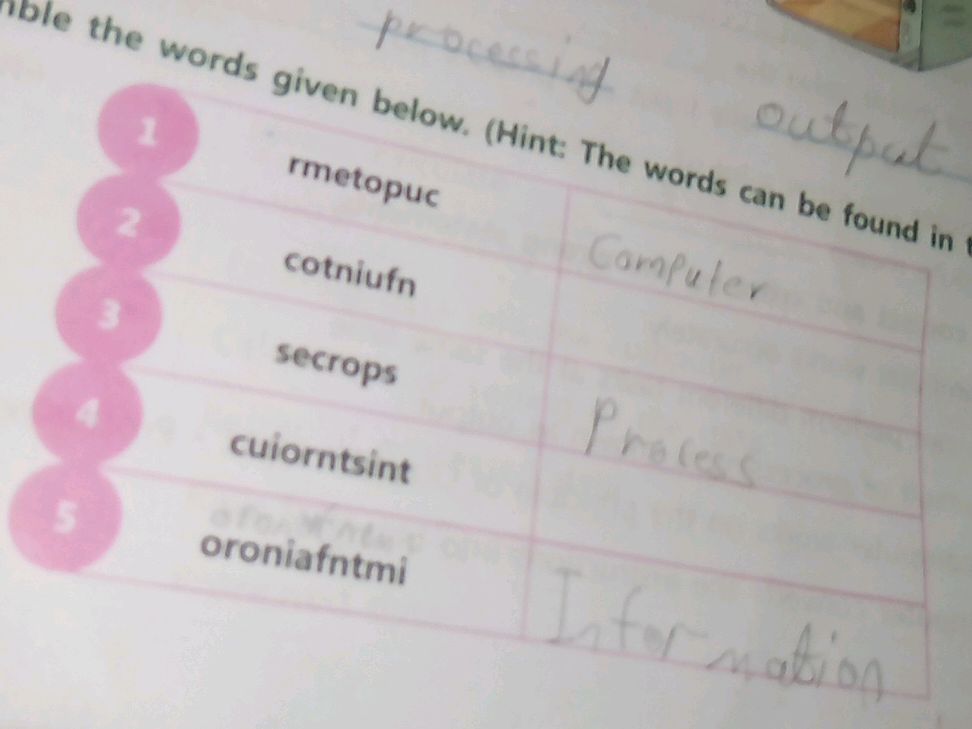 processing
output
mble the words given below. (Hint: The words can be found in t
1 rmetopuc Computer
2 cotniufn
3 secrops Process
4 cuiorntsint
5 oroniafntmi Information